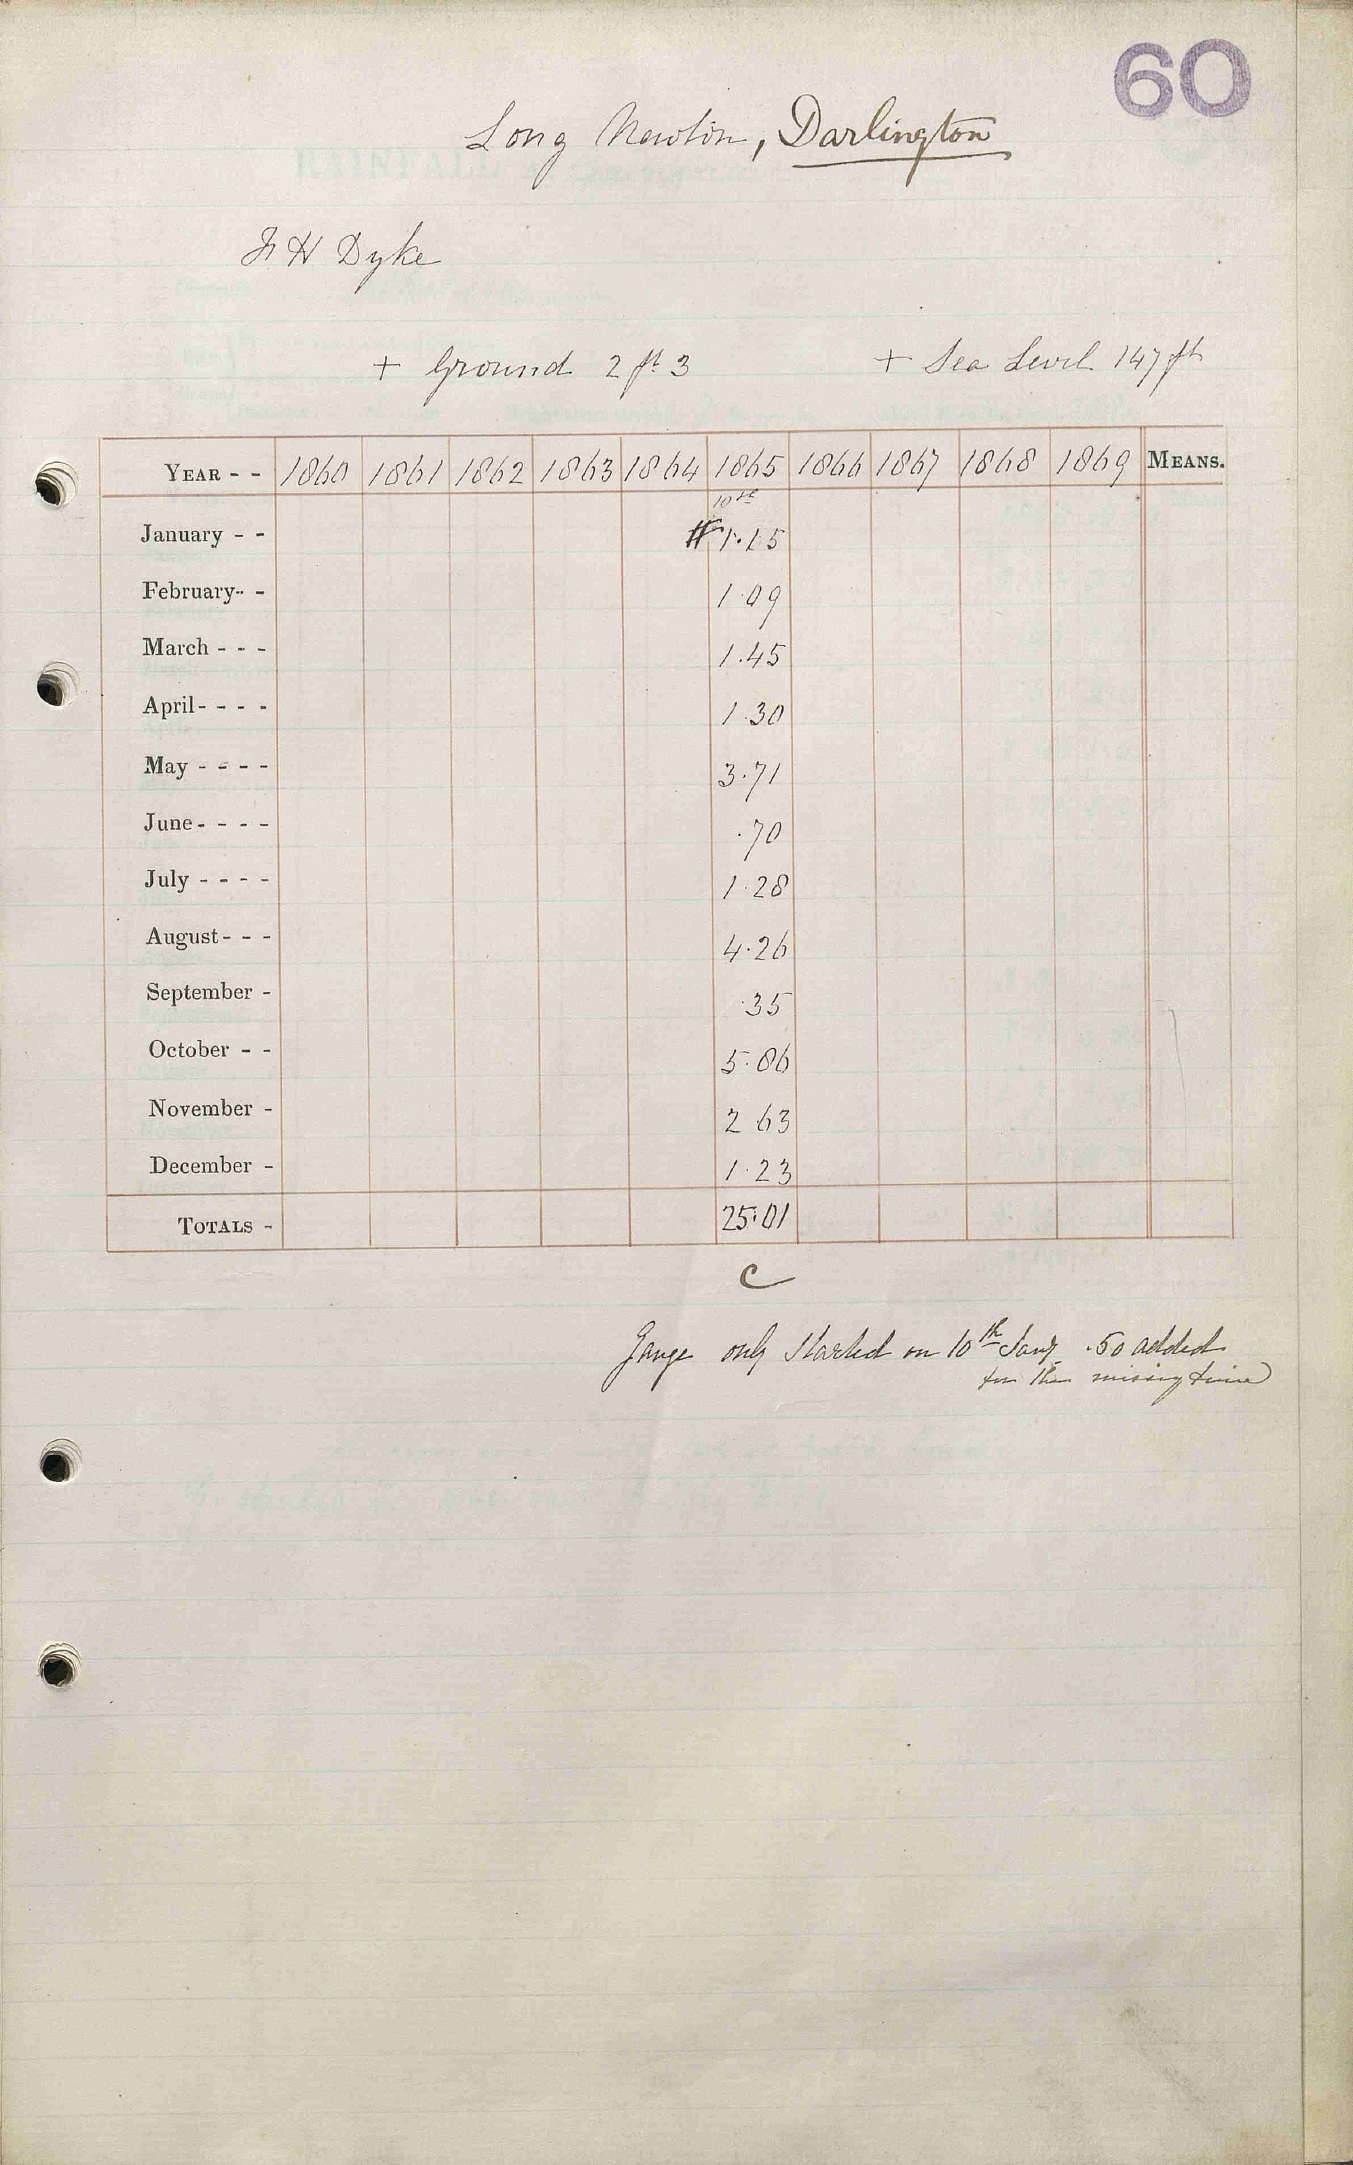 60
Long Newton, Darlington
F H Dyke
+ Ground 2 ft 3
+ Sea Level 147 ft
YEAR - - 1860 1861 1862 1863 1864 1865 1866 1867 1868 1869 MEANS.
10th
January - - # 1.15
February - - 1.09
March - - - 1.45
April - - - - 1.30
May - - - - 3.71
June - - - - .70
July - - - - 1.28
August - - - 4.26
September - .35
October - - 5.86
November - 2 63
December - 1.23
TOTALS - 25.01
C
Gauge only started on 10th Jany .50 added
for the missing time